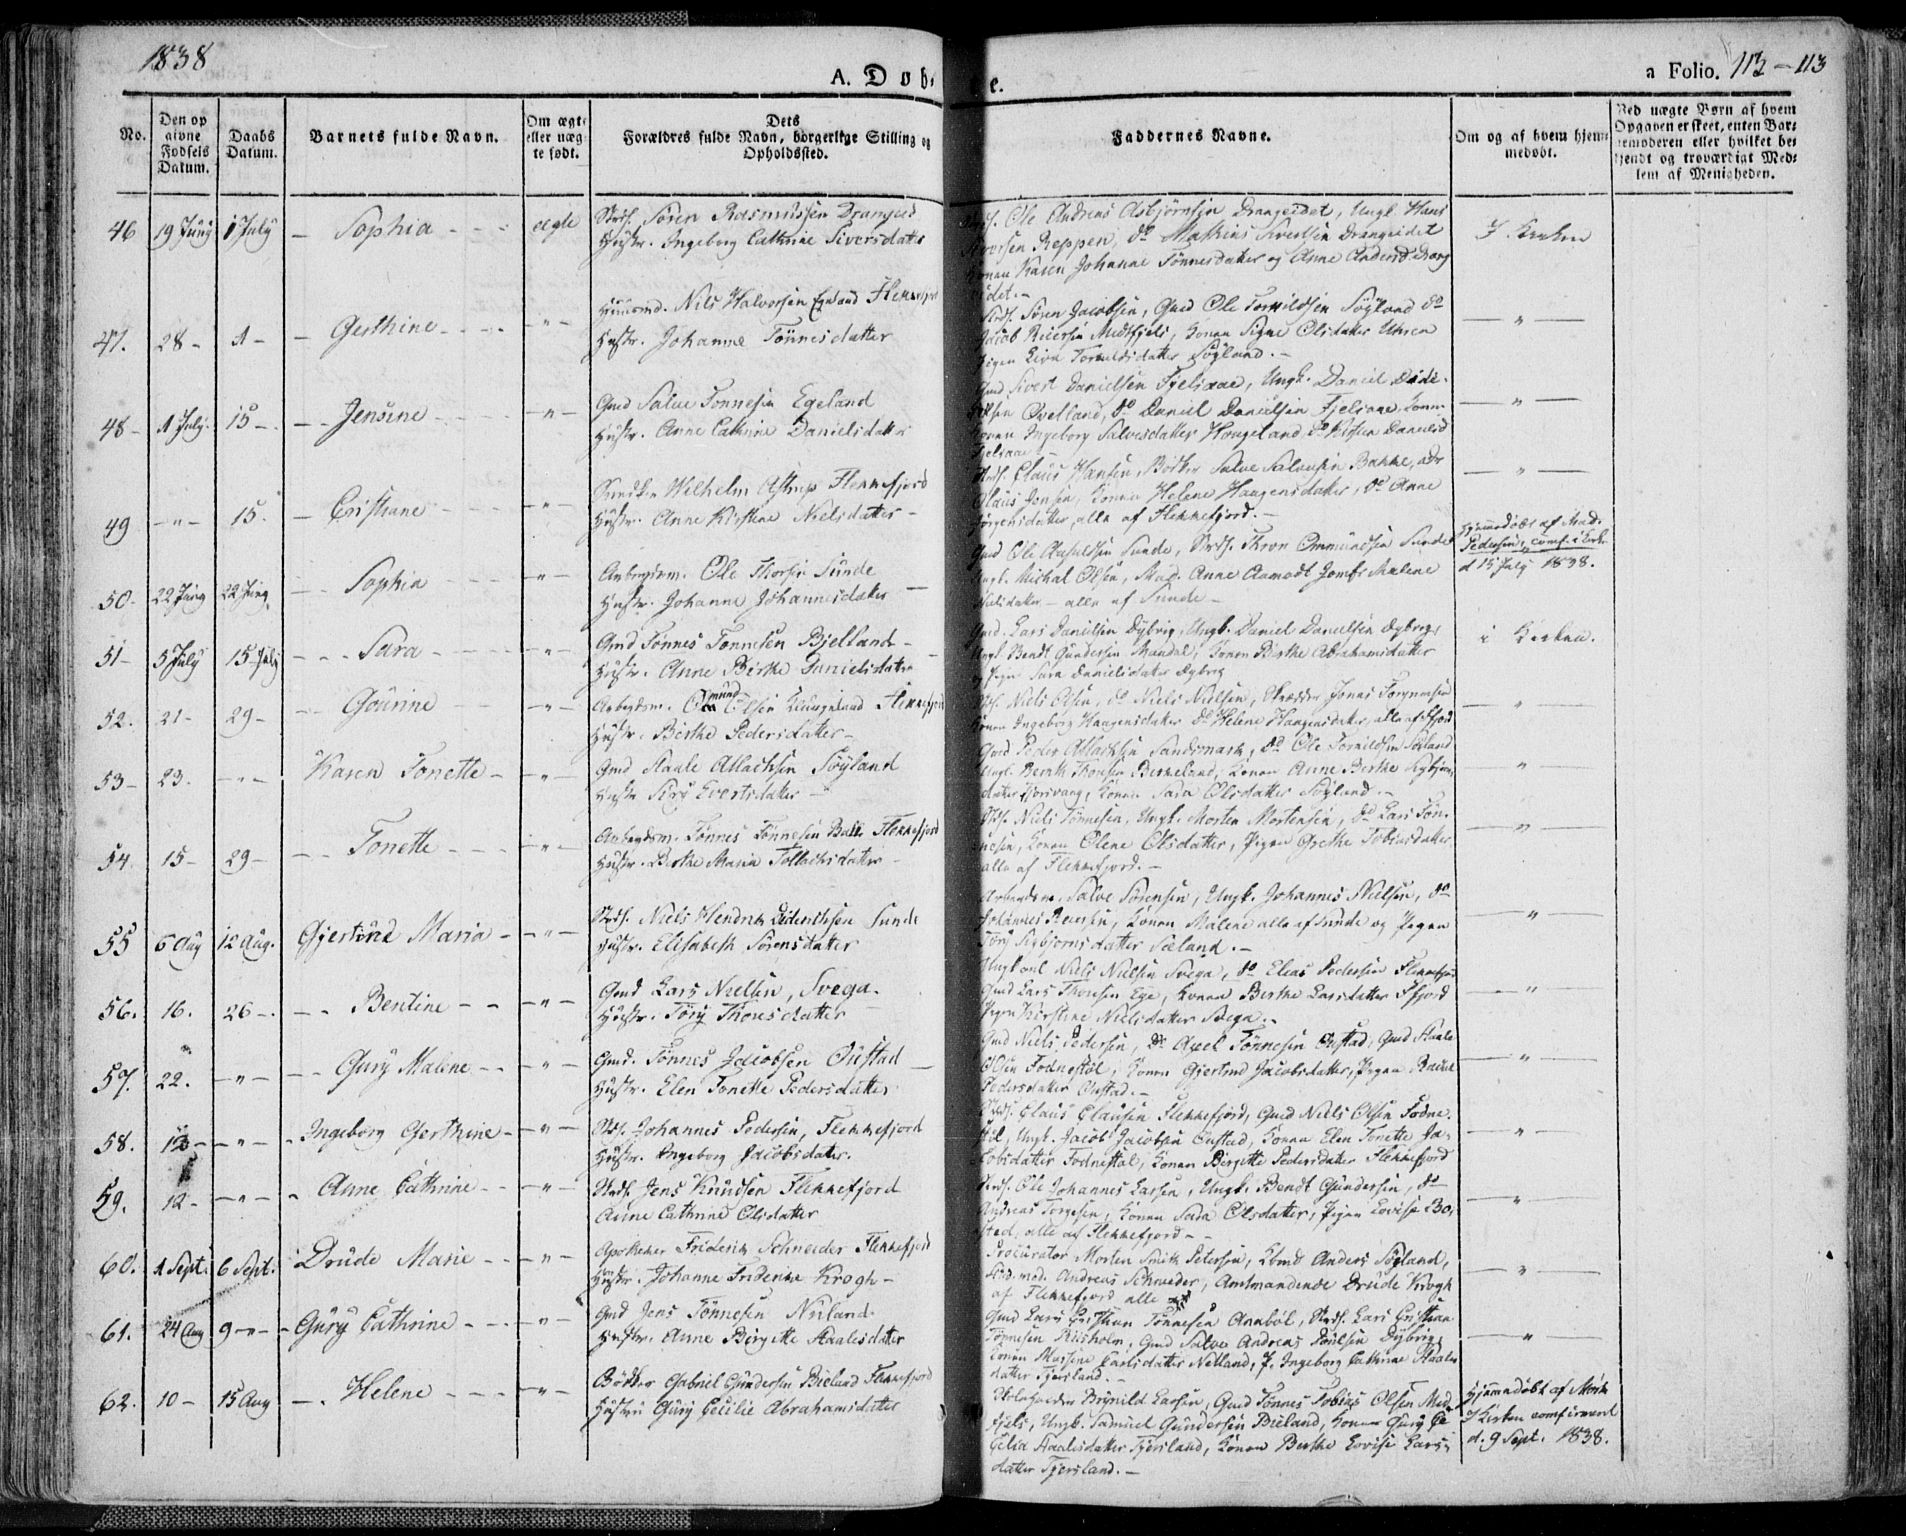 1838
A. Døb-
e.
a Folio. 112-113
No.
Den op givne Fødsels Datum.
Daabs Datum.
Barnets fulde Navn.
Om ægte eller uægte født.
Dets Forældres fulde Navn, borgerlige Stilling og Opholdssted.
Faddernes Navne.
Om og af hvem hjemmedøbt.
Ved uægte Børn af hvem Opgaven er skeet, enten Barnemoderen eller hvilket bekjendt og troværdigt Medlem af Menigheden.
46 19 Juny 1 July - Sophia - - - ægte
Strds. Sören Rasmussen Drangeid
Hustr. Ingeborg Cathrine Siversdatter
Strds. Ole Andreas Asbjørnsen Drangeidet, Ungk. Hans
Siversen Reppen, do Mathias Sivertsen Drangeidet
Konen Karen Johanne Tönnesdatter og Anne Andersd. Drang
eidet.-
I Kirken
47. 28 - 1 - - Gerthine - - - - " -
Huusmd. Nils Halvorsen Egeland Flekkefjord
Hustr. Johanne Tönnesdatter
Strds. Sören Jacobsen, Gmd Ole Torkildsen Söyland do
Jacob Reiersen Midtfjeld, Konen Signe Olsdatter Uhren
Pigen Siri Torkeldsdatter Söyland.-
- " -
48 - 1 July. 15 - - - Jensine - - - " -
Gmd Salve Tönnesen Egeland
Hustr. Anne Cathrine Danielsdatter
Gmd Sivert Danielsen Fjelsaae, Ungk. Daniel Didriksen Øvelland, do Daniel Danielsen Fjelsaae, Konen Ingeborg Salvesdatter Haugeland,
- " -
49 - " - 15. - Cristiane - - - " -
Wilhelm Astrup Flekkefjord
Hustr. Anne Kirstine Nielsdatter -
Strds. Claus Hansen, Bödker Salve Salvesen Bakke,
Claus Jensen, Konen Helene Haagensdatter, do Anne
Jörgensdatter, alle af Flekkefjord.-
- " -
50. 22 Juny 22 Juny - - Sophia - " -
Arbeydsm. Ole Thorsen Sunde
Hustr. Johanne Johannesdatter -
Gmd Ole Sunde, Strds. Thron Ommundsen Sunde
Ungk. Michal Olsen, Mad. Anne Aamodt Jomf. Malene
Nielsdatter - alle af Sunde -
Hjemmedöbt af Mad.
Pedersen, comf. i Kirk
d. 15 July 1838.
51 - 5 July 15 July - - Sara - - - " -
Gmd Tönnes Tönnesen Bjelland -
Hustr. Anne Birthe Danielsdatter
Gmd. Lars Danielsen Dybvig, Ungk. Daniel Danielsen Dybvig
Ungk. Bendt Gundersen Mandal, Konen Birthe Abrahamsdatter
og Pigen Sara Danielsdatter Dybvig
i Kirken.
52. 21 - 29 - - Gourine - " -
Arbeydsm. Omund Olsen Flekkefjord
Hustr. Birthe Pedersdatter -
Strds. Niels Olsen, do Niels Nielsen, Skrædder Jonas Torgersen
Konen Ingeborg Haagensdatter do Helene Haagensdatter, alle af Ffjord
- " -
53 - 23. - " - Karen Tonette - - " -
Gmd Staale Atlachsen Söyland
Hustr Siry Evertsdatter -
Gmd Peder Atlachsen Sandsmark, do Ole Torkildsen Söyland
Ungk. Bernth Thorsen Birkeland, Konen Anne Birthe
datter Tjorsvaag, Konen Sara Olsdatter Söyland.-
- " -
54. 15 - 29 - - - Tonette - - - " -
Arbeydsm. Tönnes Tönnesen Flekkefjord
Hustr. Birthe Maria Tollachsdatter -
Strds. Niels Tönnesen, Ungk. Morten Mortensen, do Lars Tönnesen, Konen Olene Olsdatter, Pigen Grethe Tobiasdatter
alle af Flekkefjord.-
- " -
55 6 Aug 12 Aug. Gjertrud Maria - " -
Strds. Niels Hendrik Diderichsen Sunde
Hustr. Elisabeth Sörensdatter
Arbeydsm. Salve Sörensen, Ungk. Johannes Nielsen, do
Johannes Reiersen, Konen Malene alle af Sunde og Pigen
Töry Sigbjörnsdatter Sæland.-
- " -
56. 16. 26 - - - Bentine - - - " -
Gmd Lars Nielsen, Svega.
Hustr. Töry Thorsdatter
Ungkarl Niels Nielsen Svega, do Elias Pedersen Flekkefjord
Gmd Lars Thorsen Ege, Konen Birthe Larsdatter Ffjord
Pigen Kirstine Nielsdatter Svega.-
- " -
57. 22. - " - - Gury Malene - - - " -
Gmd. Tönnes Jacobsen Oustad -
Hustr. Elen Tonette Pedersdatter
Gmd Niels Pedersen, do Axel Tönnesen Oustad, Gmd Staale
Olsen Fodnestöl, Konen Gjertrud Jacobsdatter, Pigen Rachel
Pedersdatter Oustad.-
- " -
58. 13 - - " - - Ingeborg Gerthine - - " -
Strds. Johannes Pedersen, Flekkefjord
Hustr. Ingeborg Jacobsdatter.
Strds. Claus Clausen Flekkefjord, Gmd Niels Olsen Fodnestöl, Ungk. Jacob Jacobsen Oustad, Konen Elen Tonette Jacobsdatter Fodnestöl, Konen Birgitte Pedersdatter Flekkefjord
- " -
59. 12 - - " - - Anne Cathrine - - - " -
Strds. Jens Knudsen Flekkefjord
Anne Cathrine Olsdatter
Strds. Ole Johannes Larsen, Ungk. Bendt Gundersen, do
Andreas Torgesen, Konen Sara Olsdatter, Pigen Lovise Bosted, alle af Flekkefjord - -
- " -
60. 1 Sept. 6 Sept. Drude Marie - - " -
Apotheker Friderik Schneider Flekkefjord
Hustr. Johanne Friderikke Krogh -
Procurator Morten Smith Petersen, Anders Söyland,
Andreas Schröeder, Amtmandinde Drude Krogh
af Flekkefjord alle
- " -
61. 24 Aug 9 - " - - Gury Cathrine - - - " -
Gmd Jens Tönnesen Nuland.
Hustr. Anne Birgitte Staalesdatter
Gmd Lars Cristian Tönnesen Anaböl, Strds. Lars Cristian
Tönnesen Riisholm, Gmd Salve Andreas Poulsen Dybvig,
Konen Carlsdatter Netland, P. Ingeborg Cathrine Staales
datter Tjersland.-
- " -
62. 10 - 15 Aug - - Helene - - - " -
Bödker Gabriel Gundersen Bieland Flekkefjord
Hustru Gury Cecilie Abrahamsdatter
Brynild Larsen, Gmd Tönnes Tobias Olsen Midtfjels, Ungk. Samuel Gundersen Bieland, Konen Gury Cecilia Staalesdatter Tjersland, Konen Berthe Lovise Lars-
datter Tjersland.-
Hjemmedöbt af
I Kirken comfirmerd
d. 9 Sept. 1838.